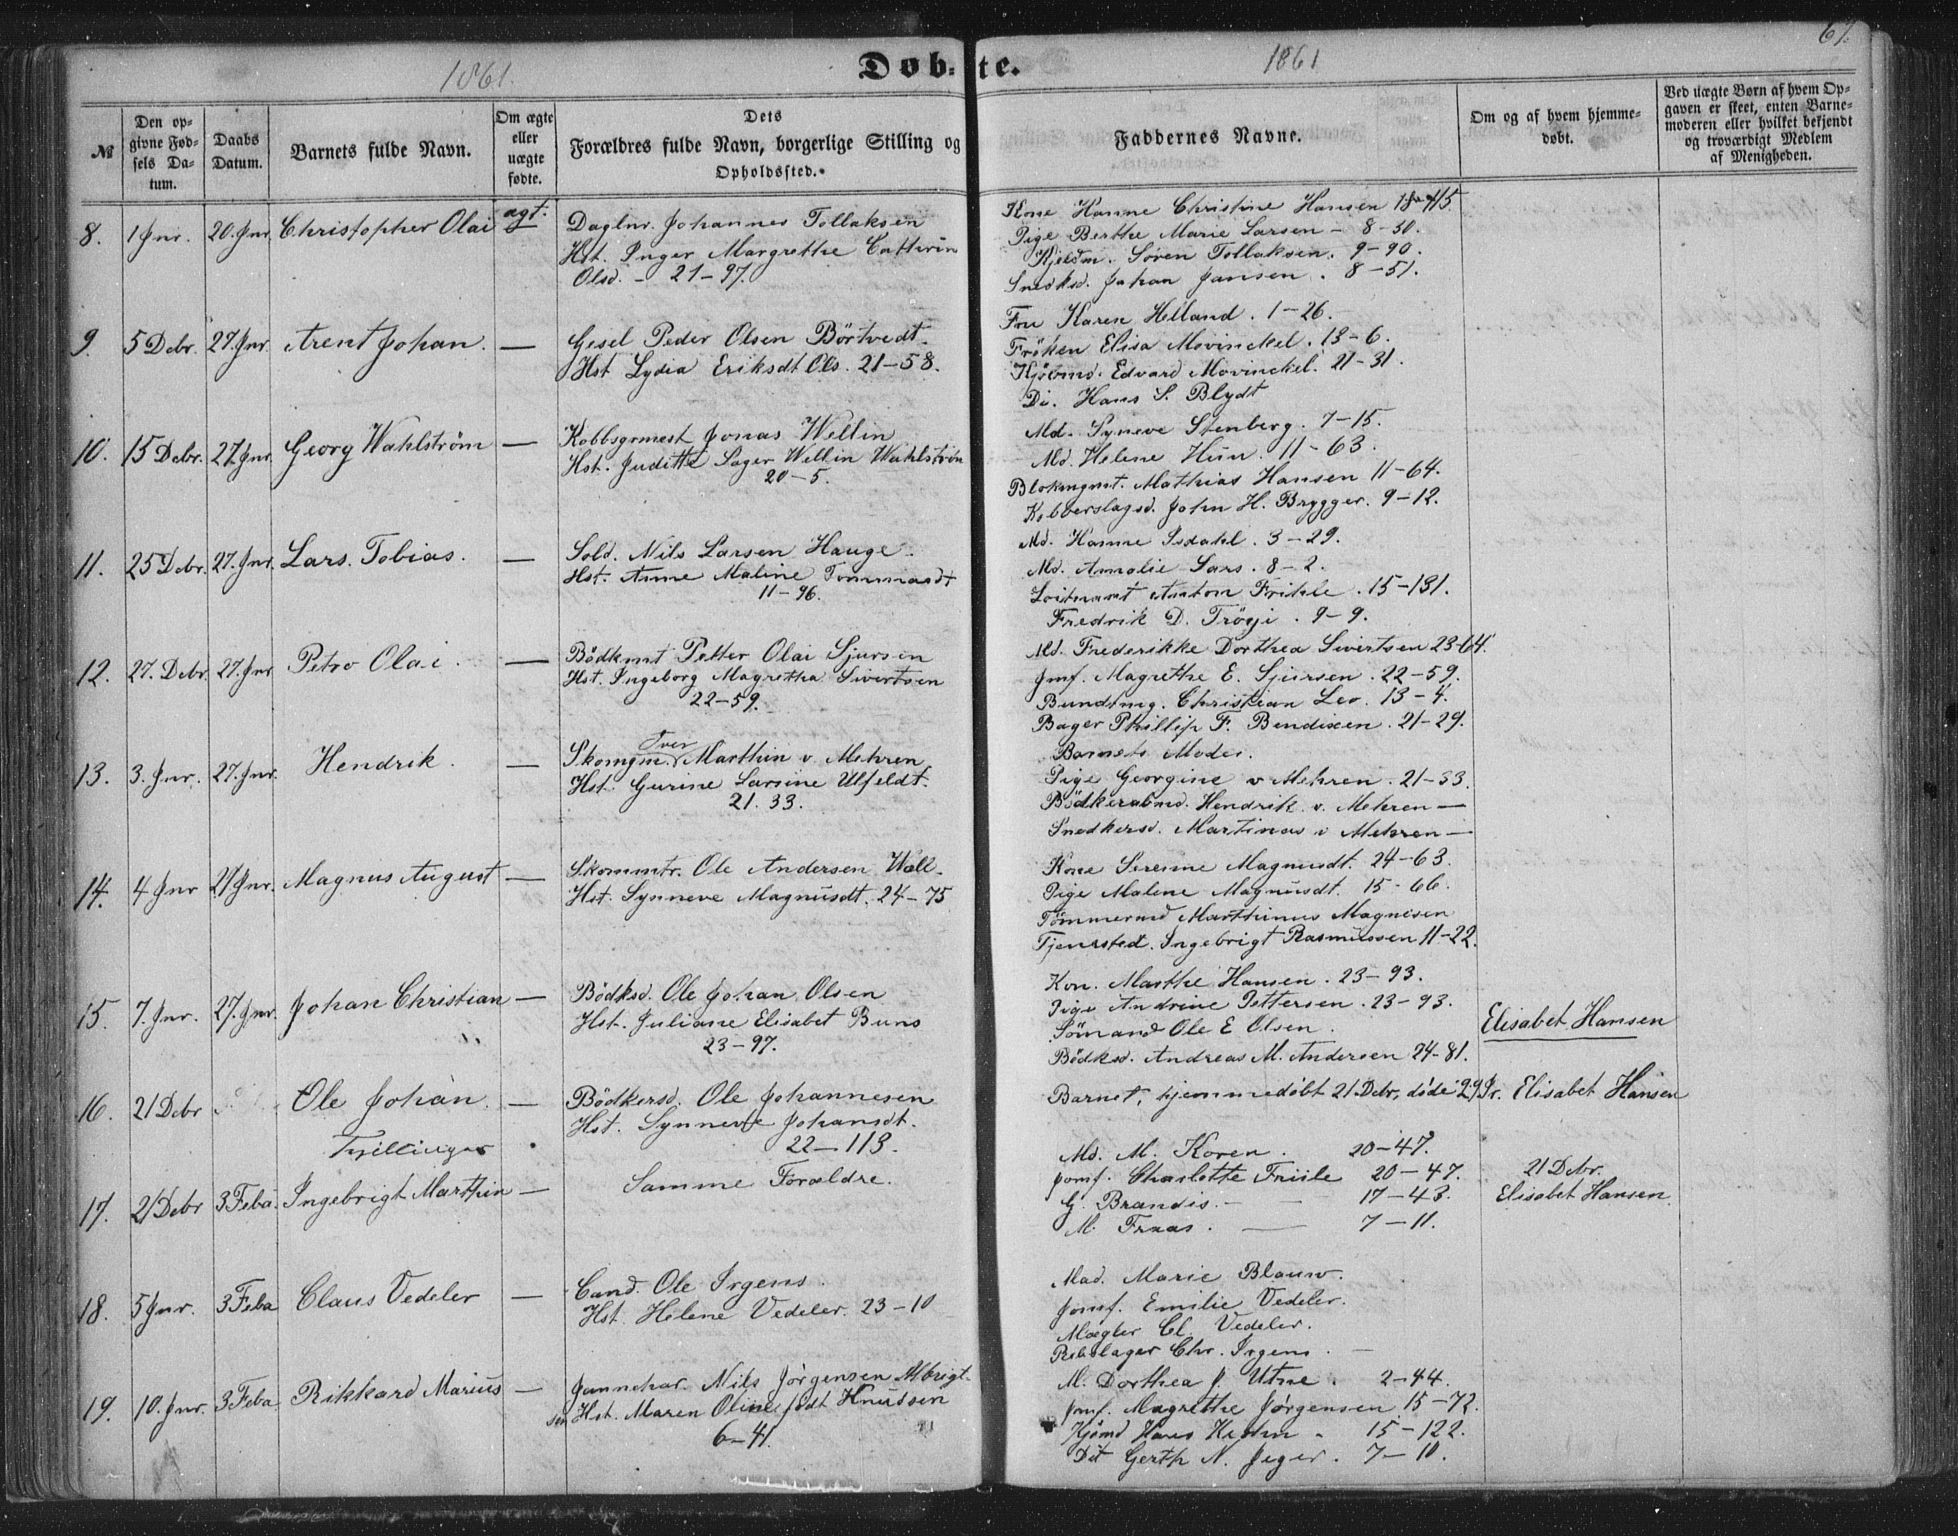 1861.
Døb-te.
1861
67.
№
Den opgivne Fødsels Datum.
Daabs Datum.
Barnets fulde Navn.
Om ægte eller uægte fødte.
Dets Forældres fulde Navn, borgerlige Stilling og Opholdssted.
Faddernes Navne.
Om og af hvem hjemmedøbt.
Ved uægte Børn af hvem Opgaven er skeet, enten Barnemoderen eller hvilket bekjendt og troværdigt Medlem af Menigheden.
8. 1 Jnr. 20. Jnr. Christopher Olai ægt.
Daglnr. Johannes Tollaksen
Hst. Inger Margrethe Cathrin
Olsd. - 21-97.
Kone Hanne Christine Hansen
Pige Berthe Marie Larsen - 8-50.
Søren Tollaksen. 9-90.
Snedksd. Johan Jansen. 8-51.
9. 5 Debr. 27. Jnr. Arent Johan. —
Gesel Peder Olsen Börtvedt.
Hst Lydia Eriksdt Ols. 21-58.
Fru Karen Helland. 1-26.
Frøken Elisa Mowinckel. 13-6.
Kjöbmd. Edvard Mowinckel. 21-31.
Do. Hans S. Blydt
10. 15 Debr. 27. Jnr. Georg Wahlström —
Kobbsgrmest Jonas Wellin
Hst. Juditte Sager Wellin Wahlström
20-5.
Md. Syneve Stenberg. 7-15.
Md. Helene Hun. 11-63.
Blokmgmt. Mathias Hansen 11-64.
Kobberslagsd. John H. Brygger. 9-12.
11. 25 Debr. 27. Jnr. Lars Tobias. —
Sold. Nils Larsen Hauge.
Hst. Anne Maline Tommasdt
11-96.
Md. Hanne Isdahl. 3-29.
Md. Amalie Sars. 8-2.
Loitnant Anton Frihle. 15-131.
Fredrik D. Tröye. 9-9.
12. 27. Debr. 27. Jnr Petro Olai. —
Bödkmt Petter Olai Sjursen
Hst. Ingeborg Magretha Sivertsen
22-59.
Md. Frederikke Dorthea Sivertsen 23-64.
Jmf. Magrethe E. Sjursen. 22-59.
Bundtmg. Christian Leo. 13-4.
Bager Phillip F. Bendixen. 21-29.
13. 3. Jnr. 27. Jnr. Hendrik. —
Skomgm. Iver Marthin v. Mehren
Hst. Gurine Larsine Ulfeldt.
21. 33.
Barnets Moder.
Pige Georgine v Mehren. 21-33.
Bödkersvnd. Hendrik. v. Mehren —
Snedkersd. Martinus v Mehren —
14. 4 Jnr 27. Jnr. Magnus August —
Skommtr. Ole Andersen Wall.
Hst. Synneve Magnusdt. 24-75
Kone Serenne Magnusdt. 24-63.
Pige Malene Magnusdt. 15-66.
Tömmermd Marthinus Magnesen
Tjenested. Ingebrigt Rasmussen 11-22.
15. 7. Jnr. 27. Jnr. Johan Christian —
Bödksd. Ole Johan Olsen
Hst. Juliane Elisabet Buns
23-97.
Kon. Marthe Hansen. 23-93.
Pige Andrine Pettersen. 23-93.
Sömand Ole E Olsen.
Bödksd. Andreas M. Andersen 24-81.
Elisabet Hansen
16. 21 Debr Ole Johan. —
Bödkersd. Ole Johannesen
Hst. Synneve Johansdt.
22-113.
Barnet, hjemmedöbt 21 Debr, döde 29 Jr. Elisabet Hansen
Tvillinger
17. 21 Debr 3 Feba Ingebrigt Marthin —
Samme Forældre.
Md. M. Koren. 20-47.
Jomf. Charlotte Friile 20-47.
G. Brandis. 17-43.
M. Fraas. 7-11.
21 Debr.
Elisabet Hansen.
18. 5 Jnr. 3 Feba Claus Vedeler —
Cand. Ole Irgens.
Hst. Helene Vedeler. 23-10
Mad. Marie Blauw.
Jomf. Emilie Vedeler.
Mægler Cl. Vedeler.
Rebslager Chr. Irgens.
19. 10. Jnr. 3 Feba Rikkard Marius —
Nils Jørgensen Albrigtsen
Hst. Maren Oline födt Knutsen
6-41.
M. Dorthea J. Utne. 2-44.
Jomf. Magrethe Jørgensen 15-72.
Kjömd Hans Hejdm 15-122.
Dit Gerth N. Jeger. 7-10.